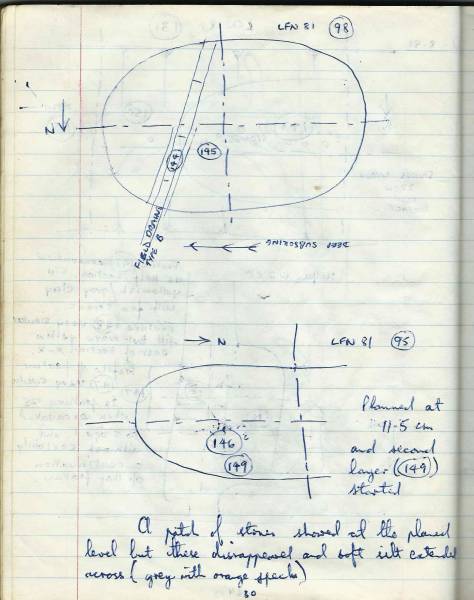 LFN 81 98
N
144
195
FIELD DRAIN
TYPE B
DEEP SUBSOILING
N LFN 81 95
Planned at
11.5 cm
146
and second
149
layer (149)
started
A patch of stones showed at the planed
level but these disappeared and soft silt extended
across (grey with orange specks)
30